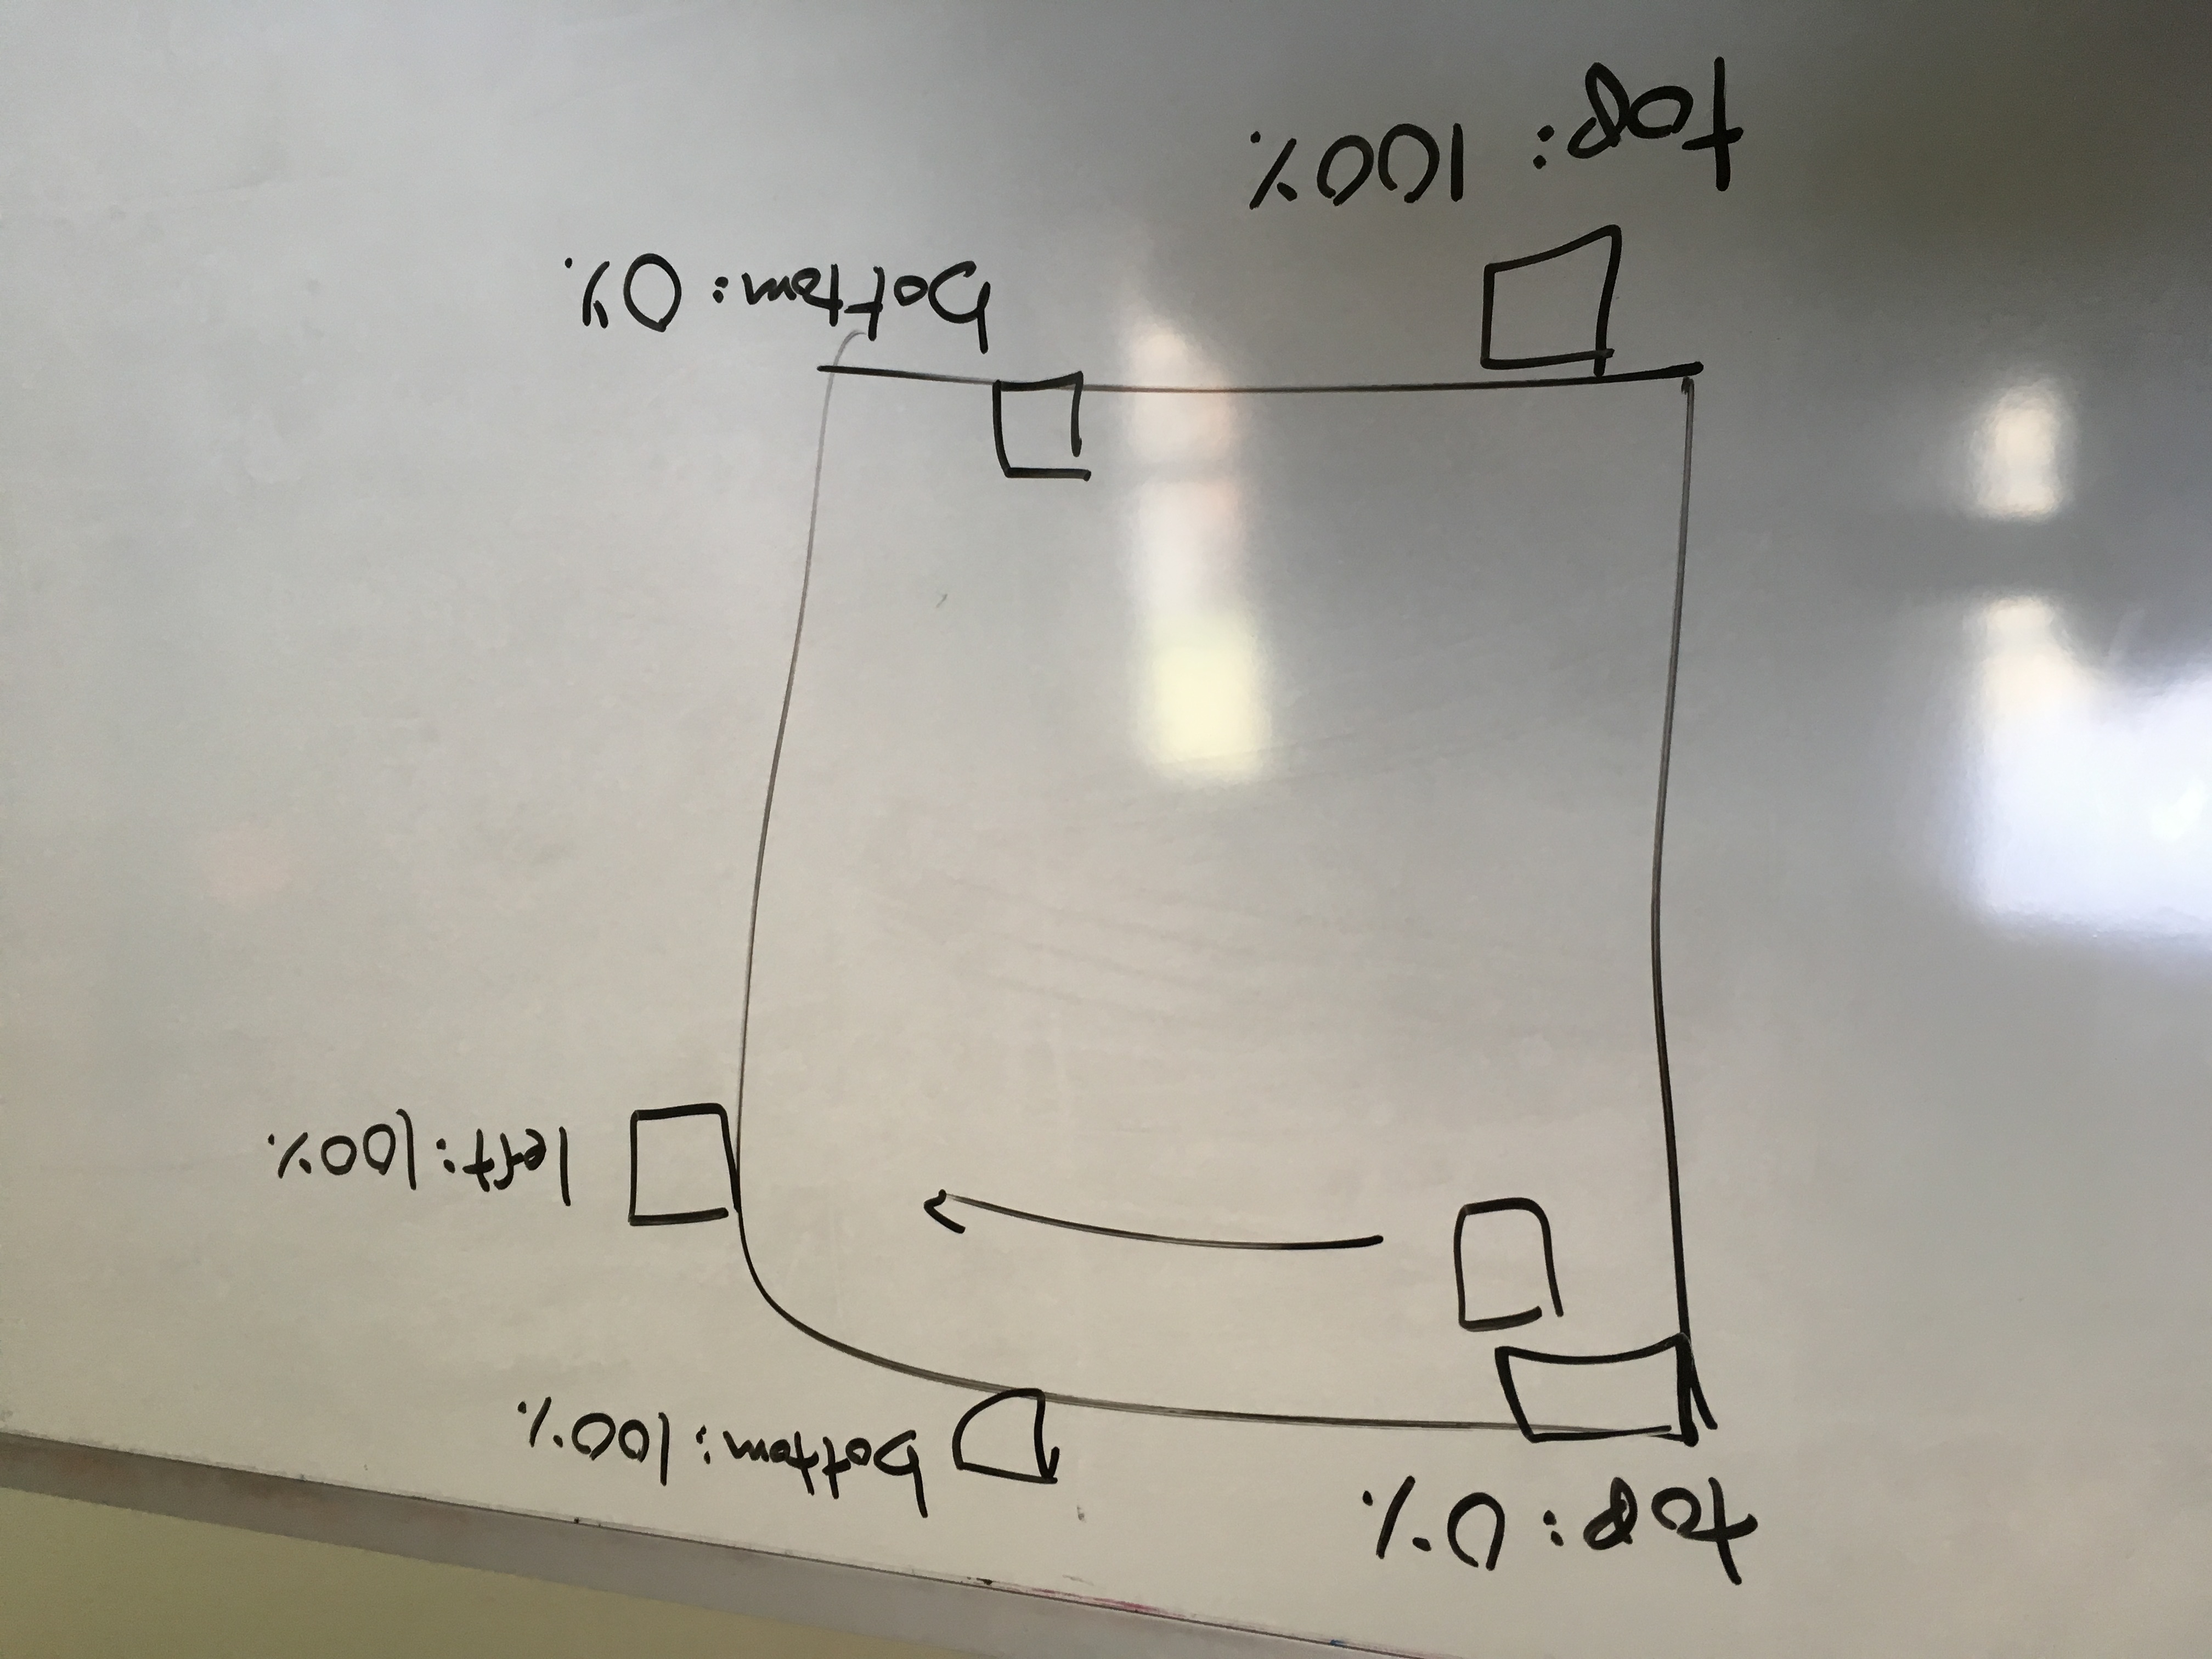 top: 0%
bottom: 100%
left: 100%
bottom: 0%
top: 100%